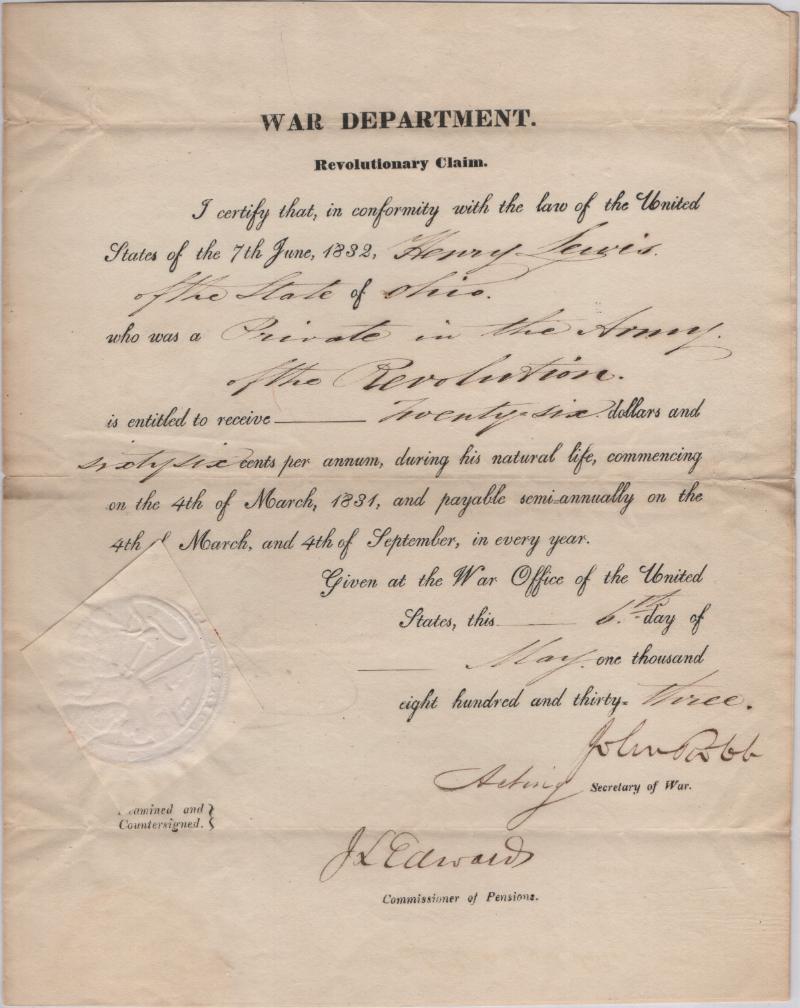 WAR DEPARTMENT.
Revolutionary Claim.
I certify that, in conformity with the law of the United
States of the 7th June, 1832, Henry Lewis.
of the State of Ohio.
who was a Private in the Army.
of the Revolution.
is entitled to receive Twenty-six dollars and
sixty six cents per annum, during his natural life, commencing
on the 4th of March, 1831, and payable semi-annually on the
4th of March, and 4th of September, in every year.
Given at the War Office of the United
States, this 6.th day of
May. one thousand
eight hundred and thirty-three.
John Robb
Acting Secretary of War.
Examined and
Countersigned.
J L Edwards
Commissioner of Pensions.